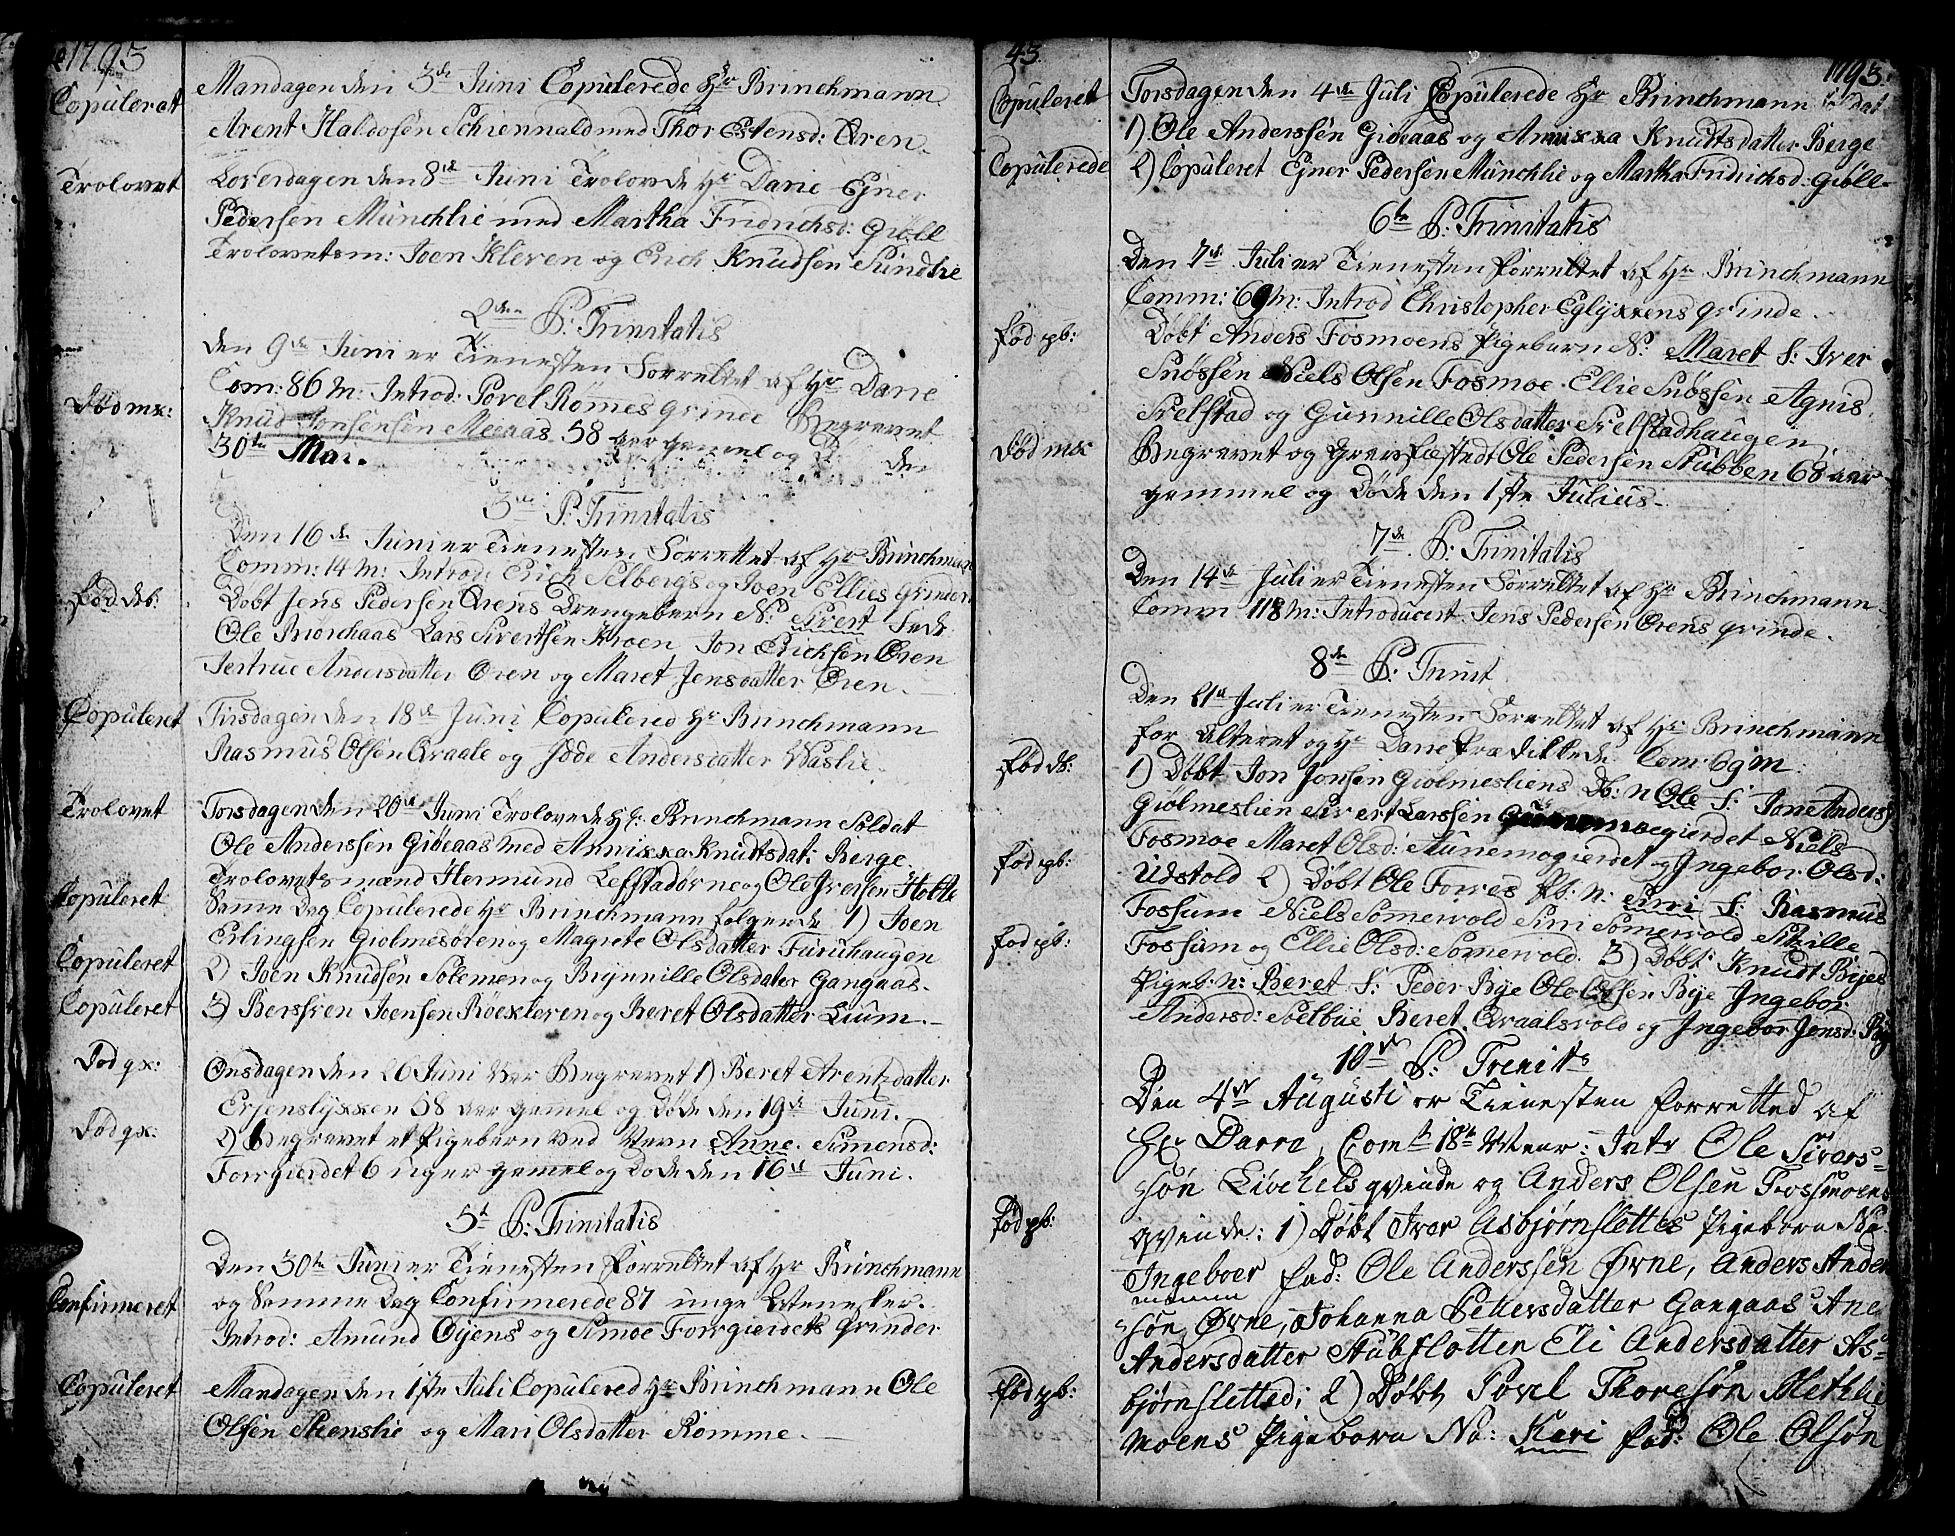 1793
Copuleret
Mandagen den 3de Juni Copulerede Hr Brinchmann
Arent Haldosen Schiennald med Thor Estensd: Øren.
Trolovet
Løverdagen den 8de Juni Trolovede Hr Darre Ejner
Pedersen Münchlie med Martha Fridrichsd: Giøll
Trolovetsm: Joen Kleven og Erich Knudsen Sundlie
2den P: Trinitatis
den 9de Juni er Tienesten Forrettet af Hr Darre
Com: 86 M: Introd: Povel Rømes qvinde Begravet
Død mk:
Knud Jonsensen Meeaas 58 aar gemel og D den
30te Mai.
3die P: Trinitatis
Den 16de Juni er Tienesten Forrettet af Hr Brinchman
Comm: 14 M: Introd: Erich Selbergs og Joen Ellies qvinder
Fød db:
Døbt Jens Pedersen Ørens Drengebarn N: Sivert Fad:
Ole Mørchaas Lars Sivertsen Hroen Jon Erichsen Øren
Jertrue Andersdatter Øren og Maret Jensdatter Øren.
Copuleret
Tirsdagen den 18de Juni Copulered Hr Brinchmann
Rasmus Olsen Qraale og Idde Andersdatter Waslie.
Trolovet
Torsdagen den 20de Juni Trolovede Hr: Brinchmann Soldat
Ole Anderssen Gibeaas med Annixxa Knudtsdat: Berge.
Trolovetsmænd Hermund Leffstadørne og Ole Iversen Holte
Copuleret
Samme Dag Copulerede Hr Brinchmann følgende 1) Joen
Erlingsen Giolmesøren og Magrete Olsdatter Furuhaugen
Copuleret
2) Joen Knudsen Solemen og Brynnille Olsdater Gangaas.
Copuleret
3) Bersven Joensen Röexleren og Beret Olsdatter Lium.
Død qx:
Onsdagen den 26 Juni Ver Begravet 1) Beret Arentzdatter
Erjenslyxxen 58 aar gamel og Døde den 19de Juni.
Død qx:
2) Begravet et Pigebarn ved Navn Anne Simensd:
Forrgierdet 6 uger gemel og Dode den 16de Juni.
5te P: Trinitatis
Den 30te Juni er Tienesten Forrettet af Hr Brinchmann
Confirmeret
og Samme Dag Confirmerede 87 unge Mennesker.
Introd: Amund Øyens og Simoe Forrgierdets qvinder
Copuleret
Mandagen den 1ste Juli Copulered Hr Brinchmann Ole
Olsen Stenslie og Mari Olsdatter Romme.
43
1793.
Copuleret
Torsdagen den 4de Juli Copulerede Hr Brinchmann Soldat
1) Ole Anderssen Gibeaas og Annixxa Knudtsdatter Berge
Copulerede
2) Copuleret Ejner Pedersen Münchlie og Martha Fridrichsd: Giøll
6te P: Trinitatis
Den 7de Juli er Tienesten forrettet af Hr Brinchmann
Comm: 69 M: Introd Christopher Eglyxxens qvinde.
Fød pb:
Døbt Anders Fosmoens Pigebarn N: Maret F: Iver
Snössen Niels Olsen Fosmoe Ellie Snössen Agnis
Srelstad og Gunnille Olsdatter Srelstadhaugen
Død mk
Begravet og Græsfæstedt Ole Pedersen Stubben 68 aar
gammel og Døde den 1ste Julius.
7de P: Trinitatis
Den 14de Juli er Tienesten Forrettet af Hr Brinchmann
Comm 118 M: Introducert Jens Pedersen Ørens qvinde.
8de P: Trinit
Den 21de Juli er Tienesten Forrettet af Hr Brinchmann
for Alteret og Hr Darre Prædikede Com: 69 M:
Fød db:
1) Døbt Jon Jonsen Giolmesliens Db: N Ole F: Jon Anders
Giølmeslien Sivert Larssen Niels
Fosmoe Maret Olsd: Aunemogierdet og Ingebor Olsd:
Fød pb:
Udstold 2) Døbt Ole Forres Pb: N: Siri F: Rasmus
Fossum Niels Somervold Siri Somervold Sitzille
Fød pb:
Fossum og Ellie Olsd: Somervold. 3) Døbt Knudt Byes
Pigeb: N: Beret F: Peder Bye Ole Olsen Bye Ingebor
Andersd: Solbue Beret Qraalsvold og Ingebor Jensd: Bye
10de P: Trenitts
Den 4de Augusti er Tienesten forretted af
Hr Darre, Comt 18te Vear: Intr Ole Sivers=
søn Livchels qvinde og Anders Olsen Fossmoens
Fød pb:
qvinde: 1) Døbt Iver Asbjørnslettes Pigebarn Na:
Ingeboer fad: Ole Anderssen Ørne, Anders Ander
søn Ørne, Johanna Pettersdatter Gangaas Ane
Andersdatter Stubslotten Eli Andersdatter As=
Fød pb:
bjørnsletted; 2) Døbt Povel Thoresøn Slethe
moens Pigebarn Na: Kari fad: Ole Olsøn